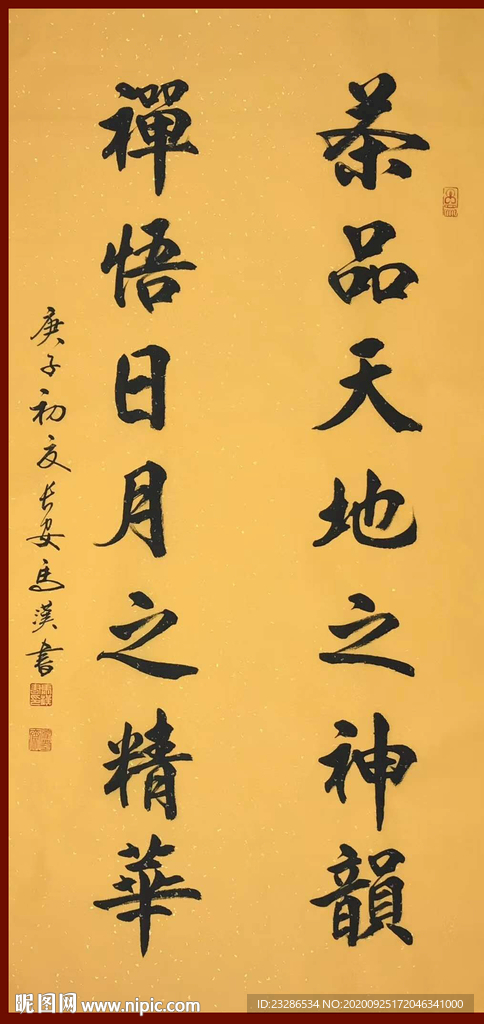 茶品天地之神韻
禪悟日月之精華
庚子初夏長安馬漢書
昵图网 www.nipic.com
ID:23286534 NO:20200925172046341000